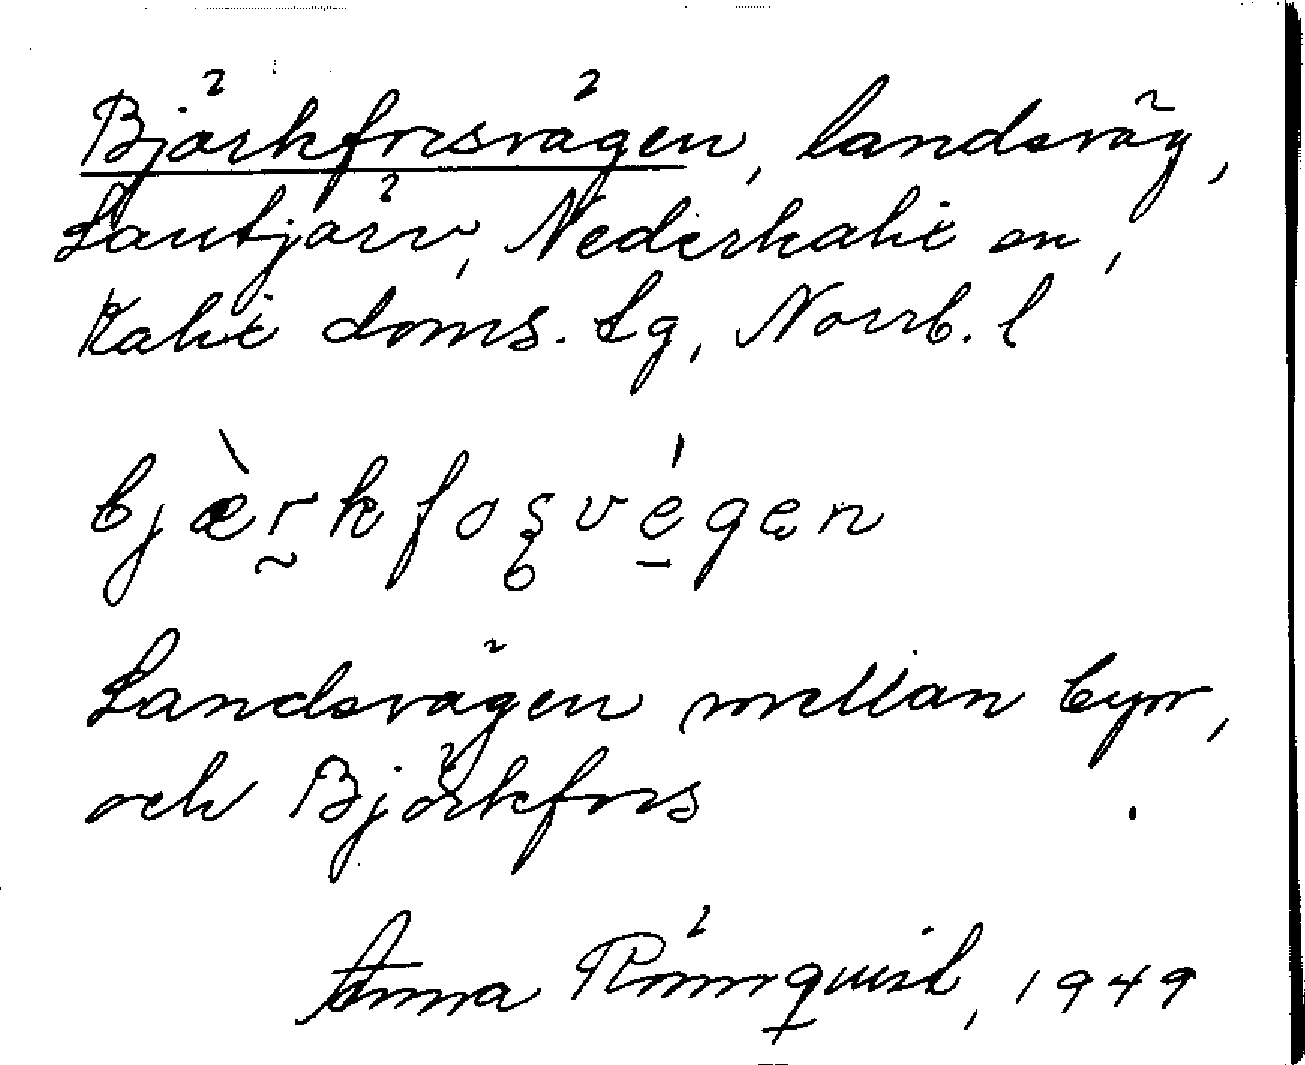 Björkforsvägen, landsväg,
Lantjärv, Nederkalix sn,
Kalix doms. lg, Norrb. l
bjæ̀r̰kfoʂvé̱gen
Landsvägen mellan byn,
och Björkfors
Anna Rönnquist, 1949